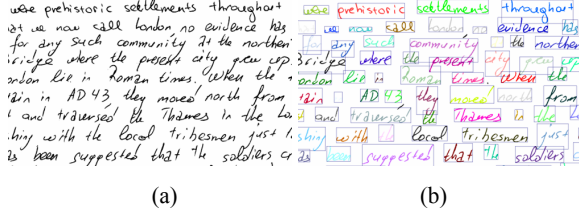 were prehistoric settlements throughout
at we now call London no evidence has
for any such community at the northern
ridge where the present city grew up.
ondon lie in Roman times. When the
tain in AD 43, they moved north from
and traversed the Thames in the
shing with the local tribesmen just
as been suggested that the soldiers
(a)
were prehistoric settlements throughout
we now call London no evidence has
for any such community at the northern
ridge where the present city grew up.
ondon lie in Roman times. When the
tain in AD 43, they moved north from
and traversed the Thames in the
shing with the local tribesmen just
as been suggested that the soldiers
(b)